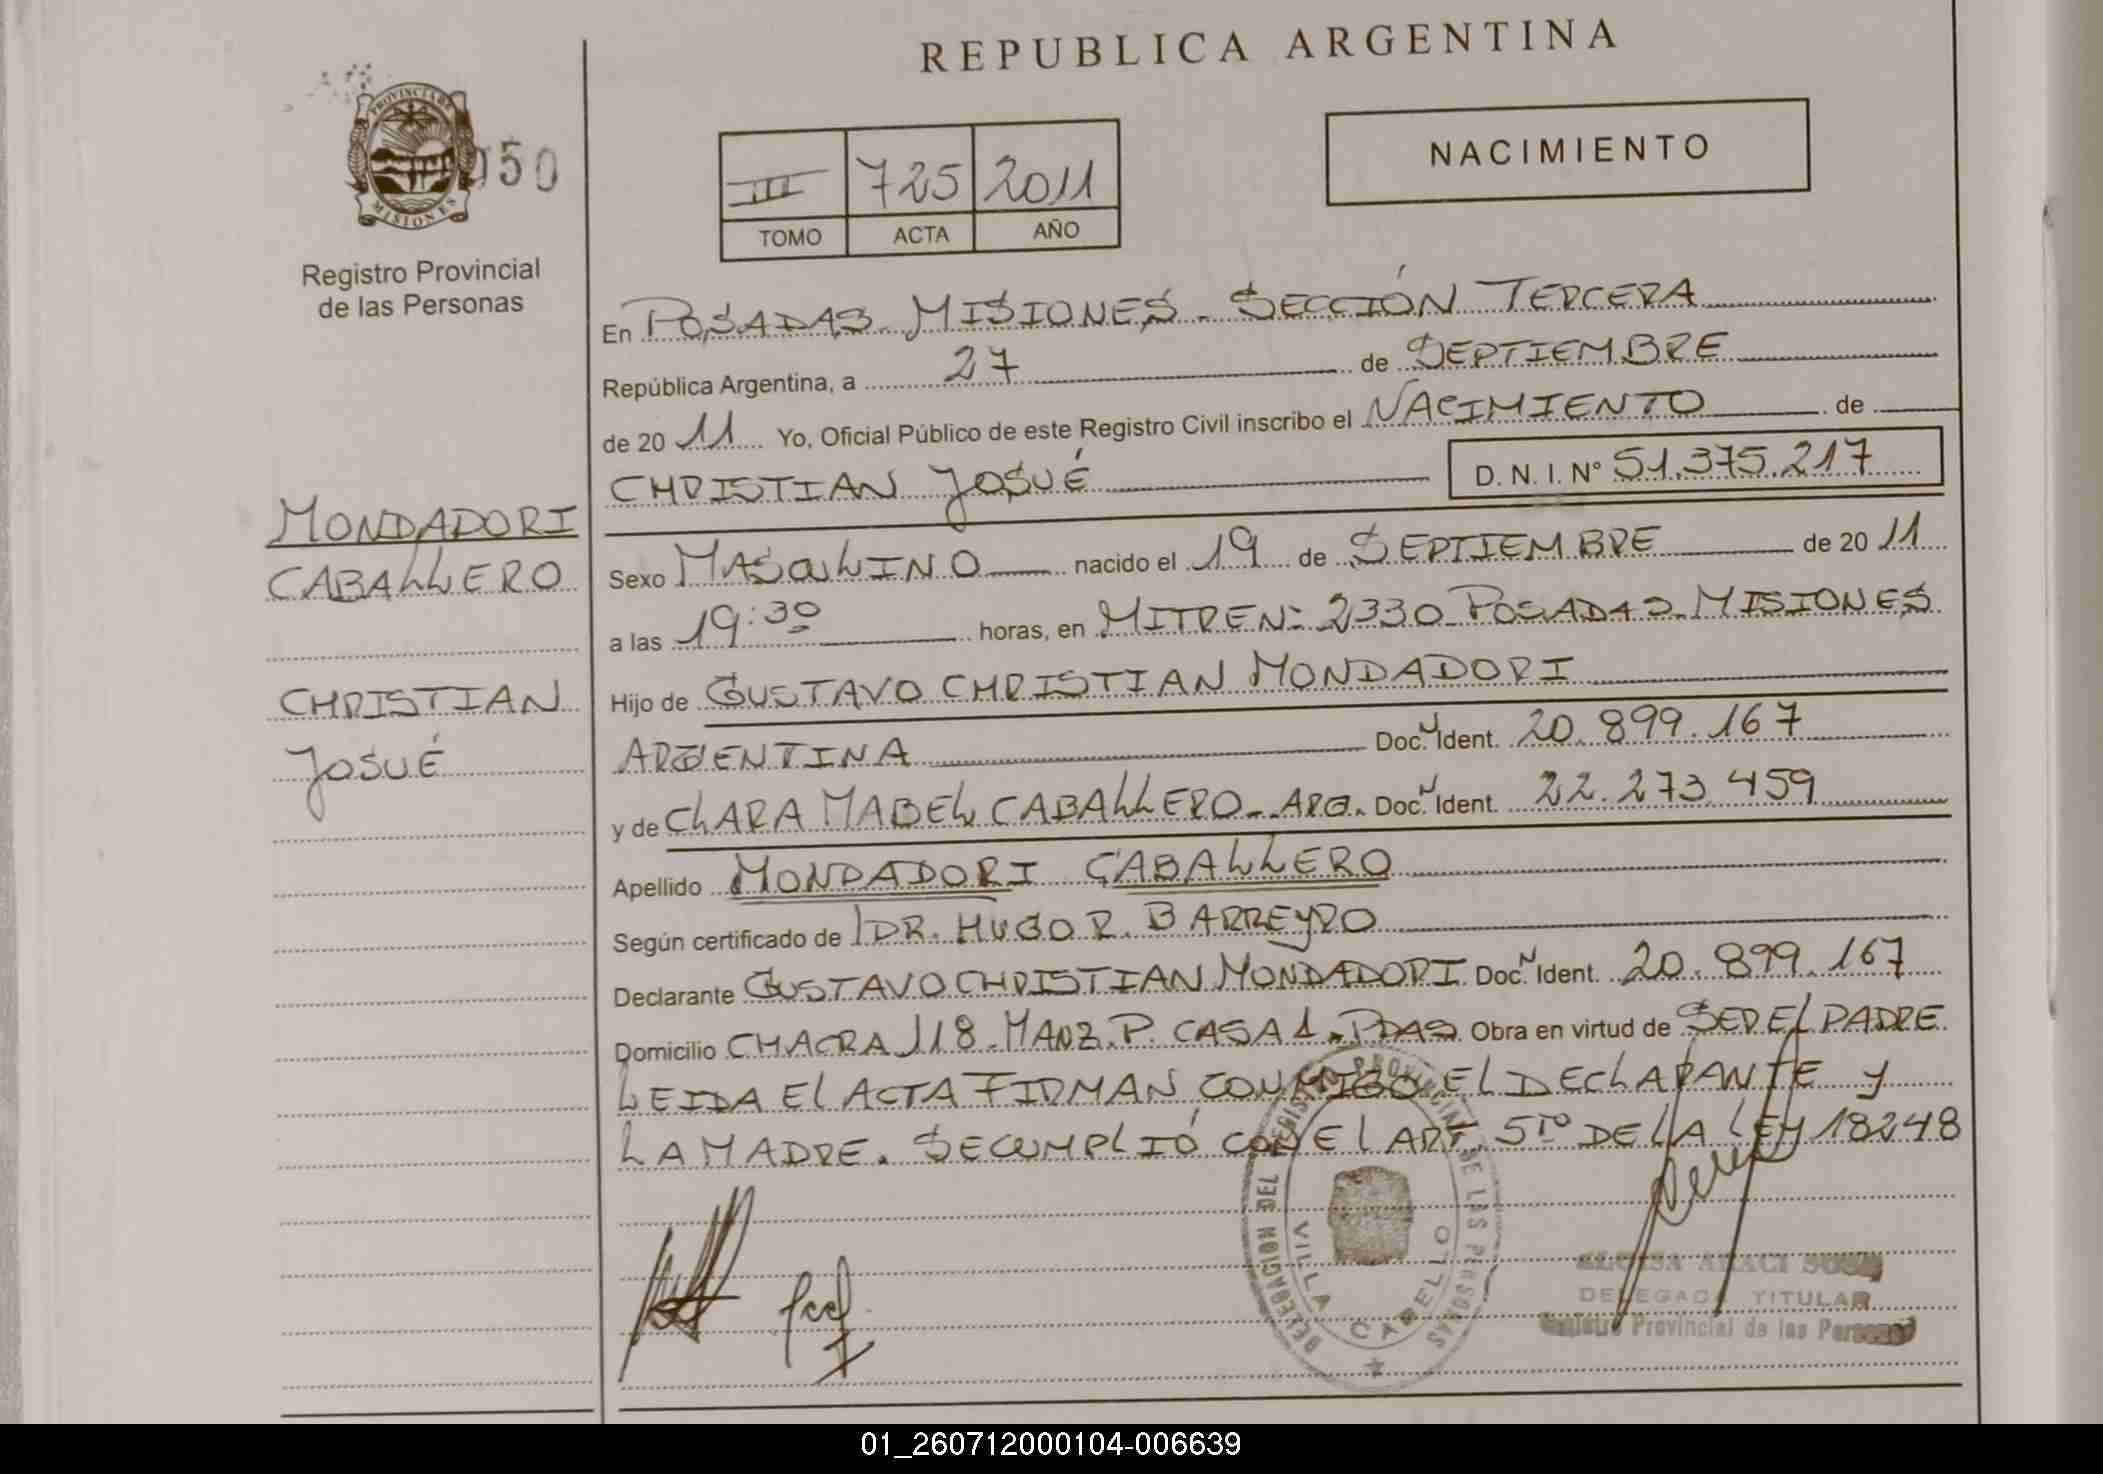 REPUBLICA ARGENTINA
PROVINCIA DE
MISIONES
050
Registro Provincial
de las Personas
III 725 2011
TOMO ACTA AÑO
NACIMIENTO
En POSADAS. MISIONES. SECCIÓN TERCERA
República Argentina, a 27 de SEPTIEMBRE
de 20 11 Yo, Oficial Público de este Registro Civil inscribo el NACIMIENTO de
CHRISTIAN JOSUÉ D. N. I. Nº 51.375.217
MONDADORI
CABALLERO
CHRISTIAN
JOSUÉ
Sexo MASCULINO nacido el 19 de SEPTIEMBRE de 20 11
a las 19:30 horas, en MITRE Nº 2330 POSADAS MISIONES
Hijo de GUSTAVO CHRISTIAN MONDADORI
ARGENTINA Doc. N Ident. 20.899.167
y de CLARA MABEL CABALLERO. ARG. Doc. N Ident. 22.273.459
Apellido MONDADORI CABALLERO
Según certificado de DR. HUGO R. BARREYRO
Declarante GUSTAVO CHRISTIAN MONDADORI Doc. N Ident. 20.899.167
Domicilio CHACRA 118. MANZ. P. CASA 1. PDAS Obra en virtud de SER EL PADRE
LEIDA EL ACTA FIRMAN CONMIGO EL DECLARANTE Y
LA MADRE. SE CUMPLIÓ CON EL ART. 5TO DE LA LEY 18248
DELEGACION DEL REGISTRO PROVINCIAL DE LAS PERSONAS
VILLA CABELLO
DELEGADA TITULAR
Registro Provincial de las Personas
01_260712000104-006639